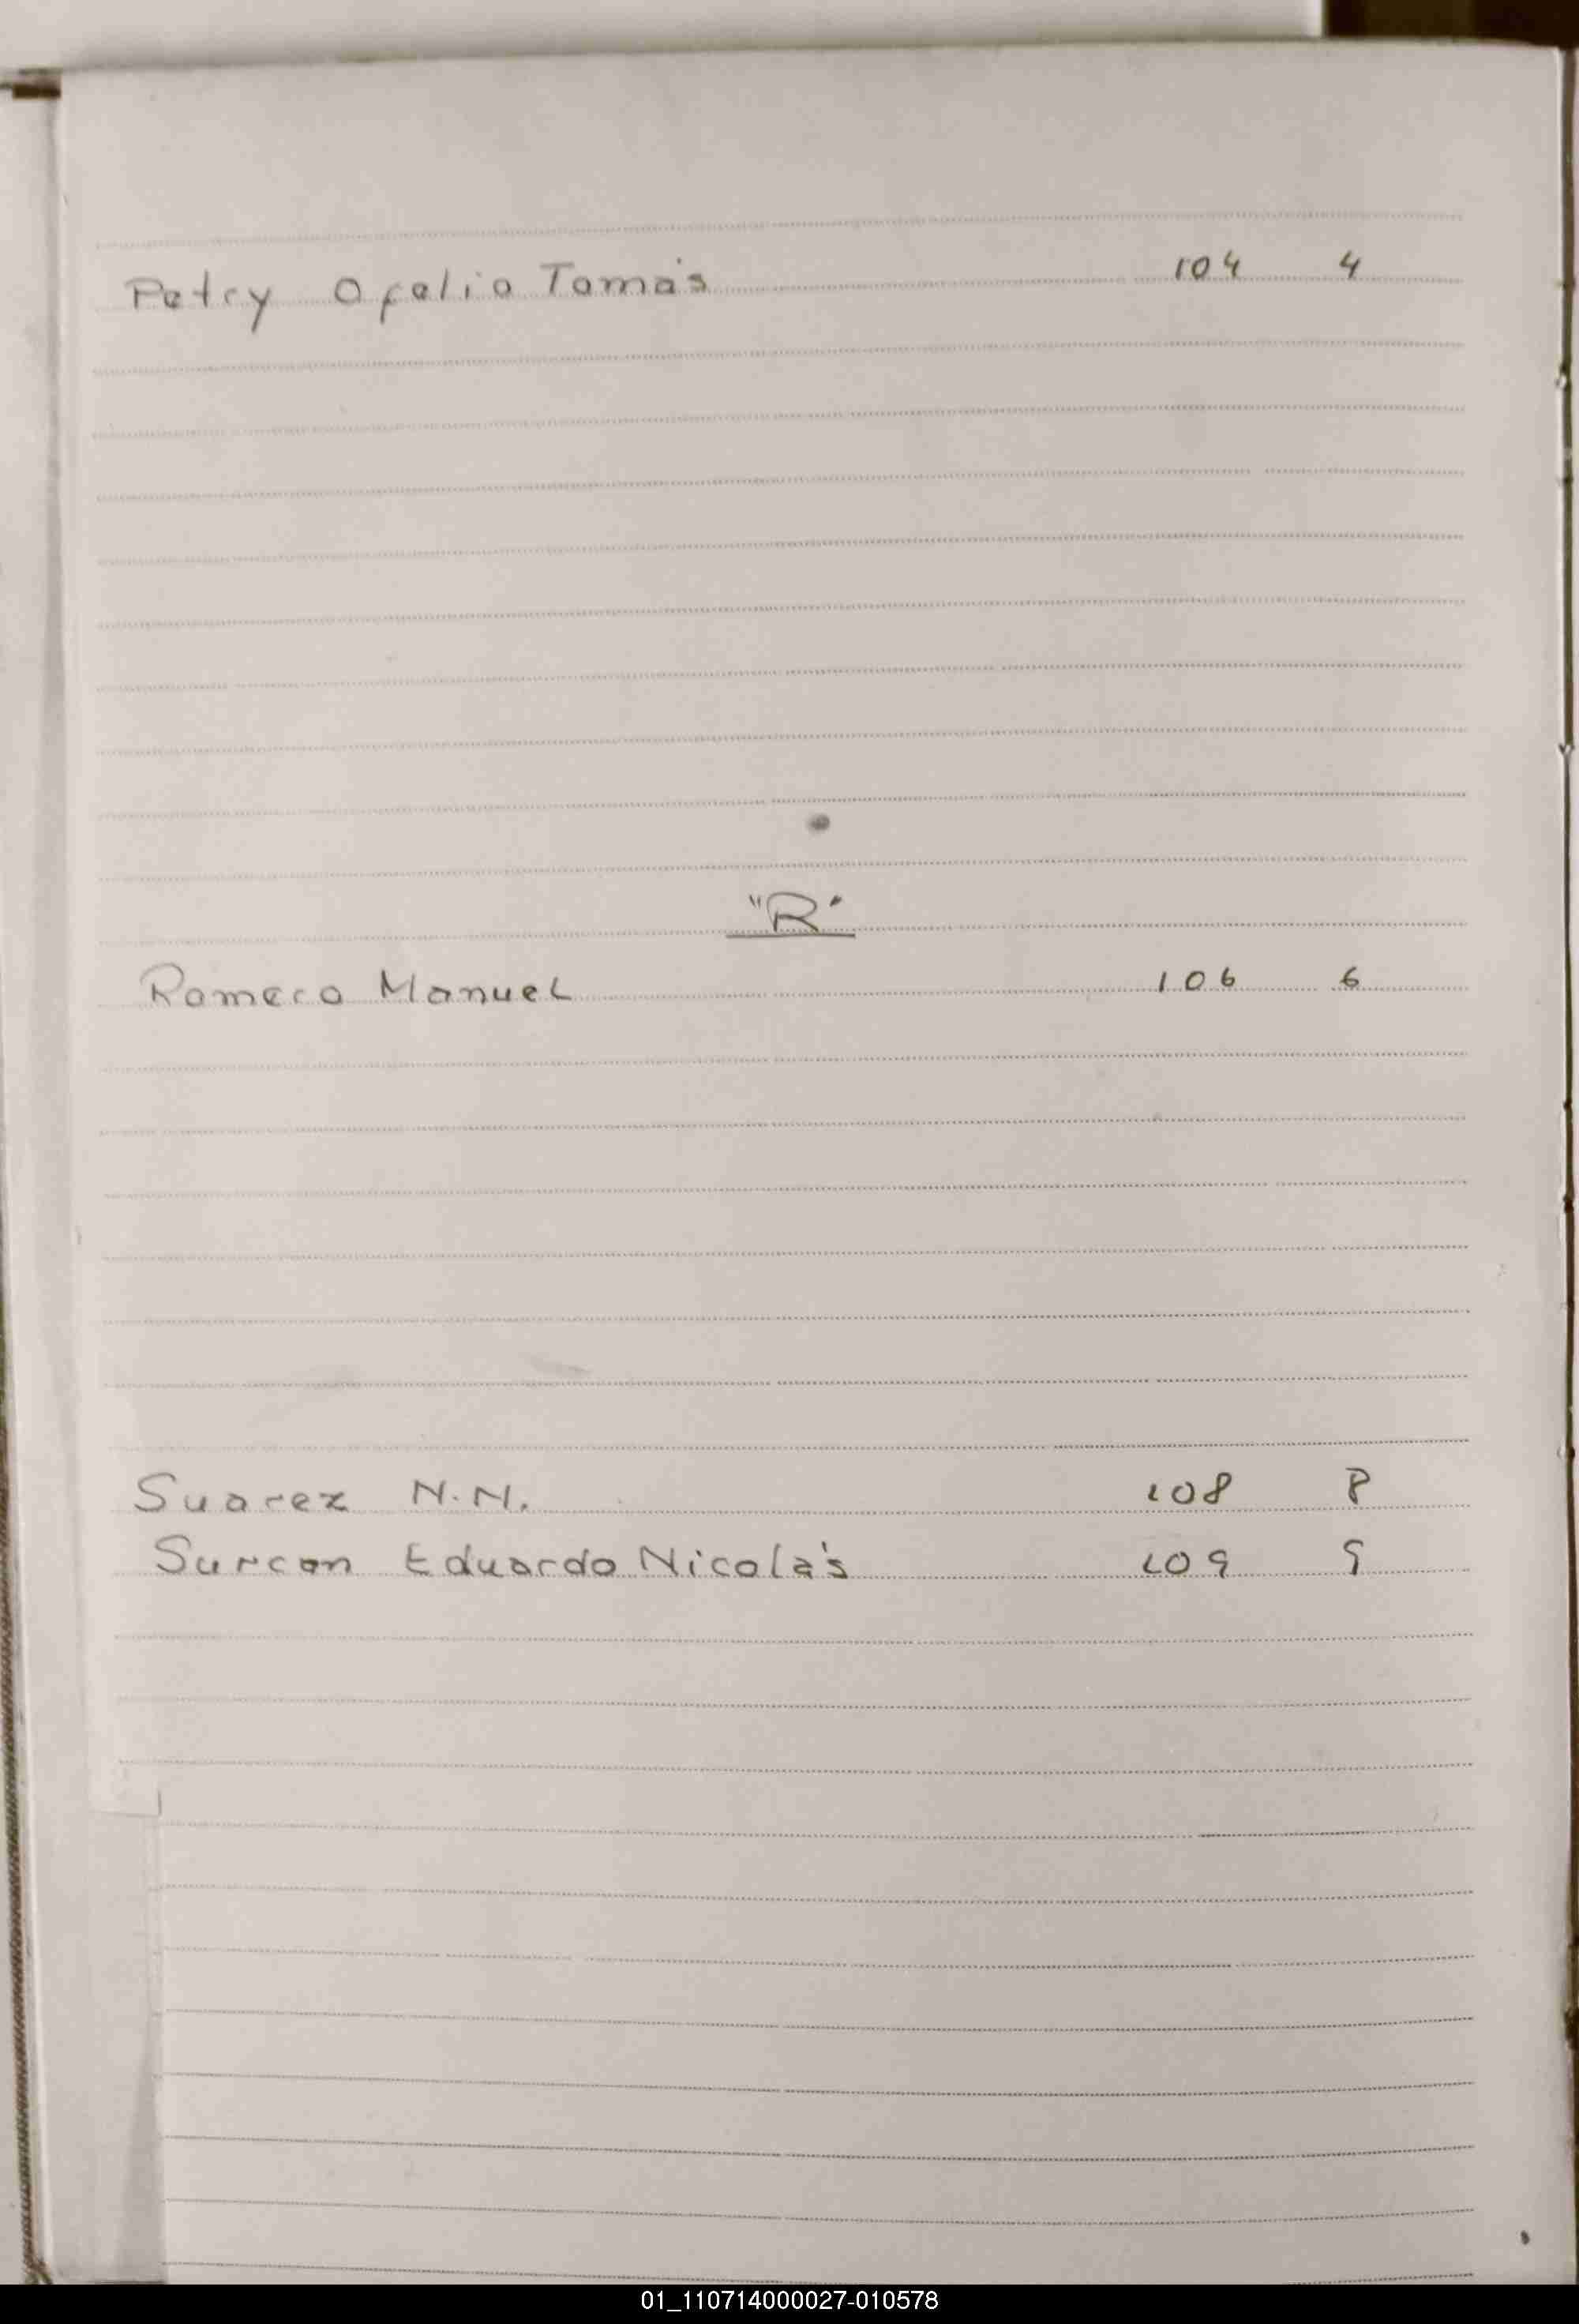 Petry Ofelio Tomás 104 4
"R"
Romero Manuel 106 6
Suarez N.N. 108 8
Surcon Eduardo Nicolás 109 9
01_110714000027-010578